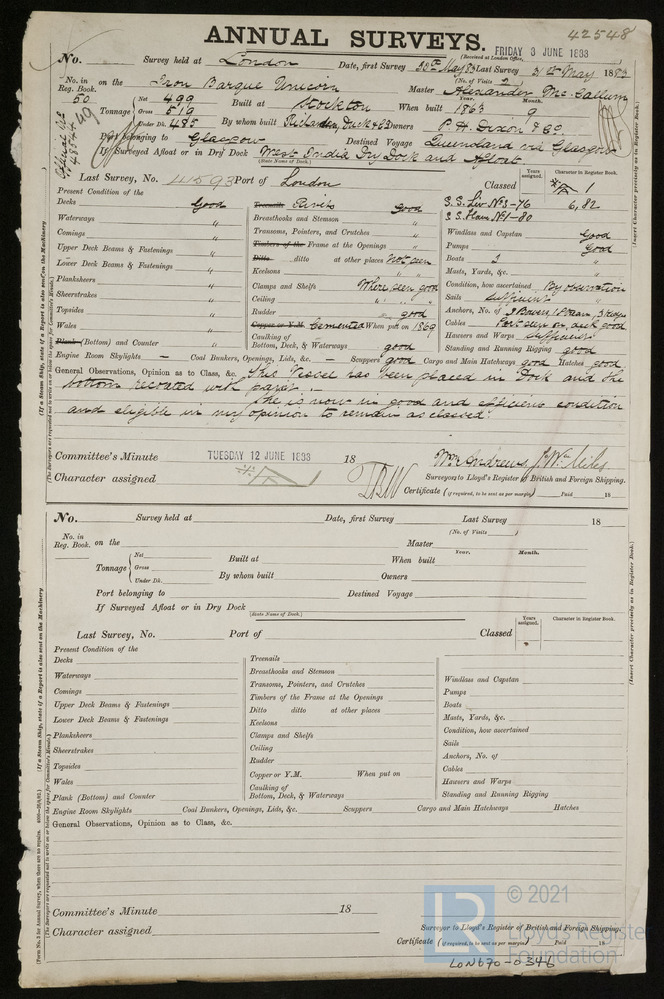 ANNUAL SURVEYS.
42548
FRIDAY 8 JUNE 1883
(Received at London Office,
No. Survey held at London Date, first Survey 30th May 83 Last Survey 31st May 1883
(No. of Visits 2)
No. in Reg. Book. 50 on the Iron Barque Unicorn Master Alexander McCallum
Tonnage Net 499 Gross 519 Under Dk. 485 Built at Stockton When built Year. 1863 Month. 9
By whom built Richardson, Duck & Co Owners P. H. Dixon & Co.
Port belonging to Glasgow Destined Voyage Queensland via Glasgow
If Surveyed Afloat or in Dry Dock West India Dry Dock and Afloat
(State Name of Dock.)
Last Survey, No. 41593 Port of London Classed Years assigned. Character in Register Book. A 1
6,82
S.S. Liv. No 3-76
Present Condition of the
Decks Good
Waterways "
Comings "
Upper Deck Beams & Fastenings "
Lower Deck Beams & Fastenings "
Planksheers "
Sheerstrakes "
Topsides "
Wales "
Plank (Bottom) and Counter "
Treenails Rivets Good
Breasthooks and Stemson "
Transoms, Pointers, and Crutches "
Timbers of the Frame at the Openings "
Ditto ditto at other places Not seen
Keelsons "
Clamps and Shelfs Where seen good
Ceiling " " "
Rudder good
Copper or Y.M. Cemented When put on 1869
Caulking of Bottom, Deck, & Waterways good
Windlass and Capstan Good
Pumps Good
Boats 2 "
Masts, Yards, &c. "
Condition, how ascertained By observation
Sails sufficient
Anchors, No. of 3 Bowers, 1 Stream, 2 Kedges
Cables Part seen on deck good
Hawsers and Warps sufficient
Standing and Running Rigging good
Engine Room Skylights — Coal Bunkers, Openings, Lids, &c. — Scuppers good Cargo and Main Hatchways good Hatches good
General Observations, Opinion as to Class, &c. This Vessel has been placed in Dock and the
bottom recoated with paint.
She is now in good and efficient condition
and eligible in my opinion to remain as classed.
Committee's Minute TUESDAY 12 JUNE 1883 18
Wm Andrews J. Wm Miles
Character assigned A 1
Surveyors to Lloyd's Register of British and Foreign Shipping.
Certificate (if required, to be sent as per margin) Paid 18
No. Survey held at Date, first Survey Last Survey 18
(No. of Visits )
No. in Reg. Book. on the Master
Tonnage Net Gross Under Dk. Built at When built Year. Month.
By whom built Owners
Port belonging to Destined Voyage
If Surveyed Afloat or in Dry Dock
(State Name of Dock.)
Last Survey, No. Port of Classed Years assigned. Character in Register Book.
Present Condition of the
Decks
Waterways
Comings
Upper Deck Beams & Fastenings
Lower Deck Beams & Fastenings
Planksheers
Sheerstrakes
Topsides
Wales
Plank (Bottom) and Counter
Treenails
Breasthooks and Stemson
Transoms, Pointers, and Crutches
Timbers of the Frame at the Openings
Ditto ditto at other places
Keelsons
Clamps and Shelfs
Ceiling
Rudder
Copper or Y.M. When put on
Caulking of Bottom, Deck, & Waterways
Windlass and Capstan
Pumps
Boats
Masts, Yards, &c.
Condition, how ascertained
Sails
Anchors, No. of
Cables
Hawsers and Warps
Standing and Running Rigging
Engine Room Skylights Coal Bunkers, Openings, Lids, &c. Scuppers Cargo and Main Hatchways Hatches
General Observations, Opinion as to Class, &c.
Committee's Minute 18
Character assigned
Surveyor to Lloyd's Register of British and Foreign Shipping.
Certificate (if required, to be sent as per margin) Paid 18
© 2021
LR
Lloyd's Register
Foundation
LON670-0346
(Insert Character precisely as in Register Book.)
(If a Steam Ship, state if a Report is also sent on the Machinery
(Insert Character precisely as in Register Book.)
(If a Steam Ship, state if a Report is also sent on the Machinery